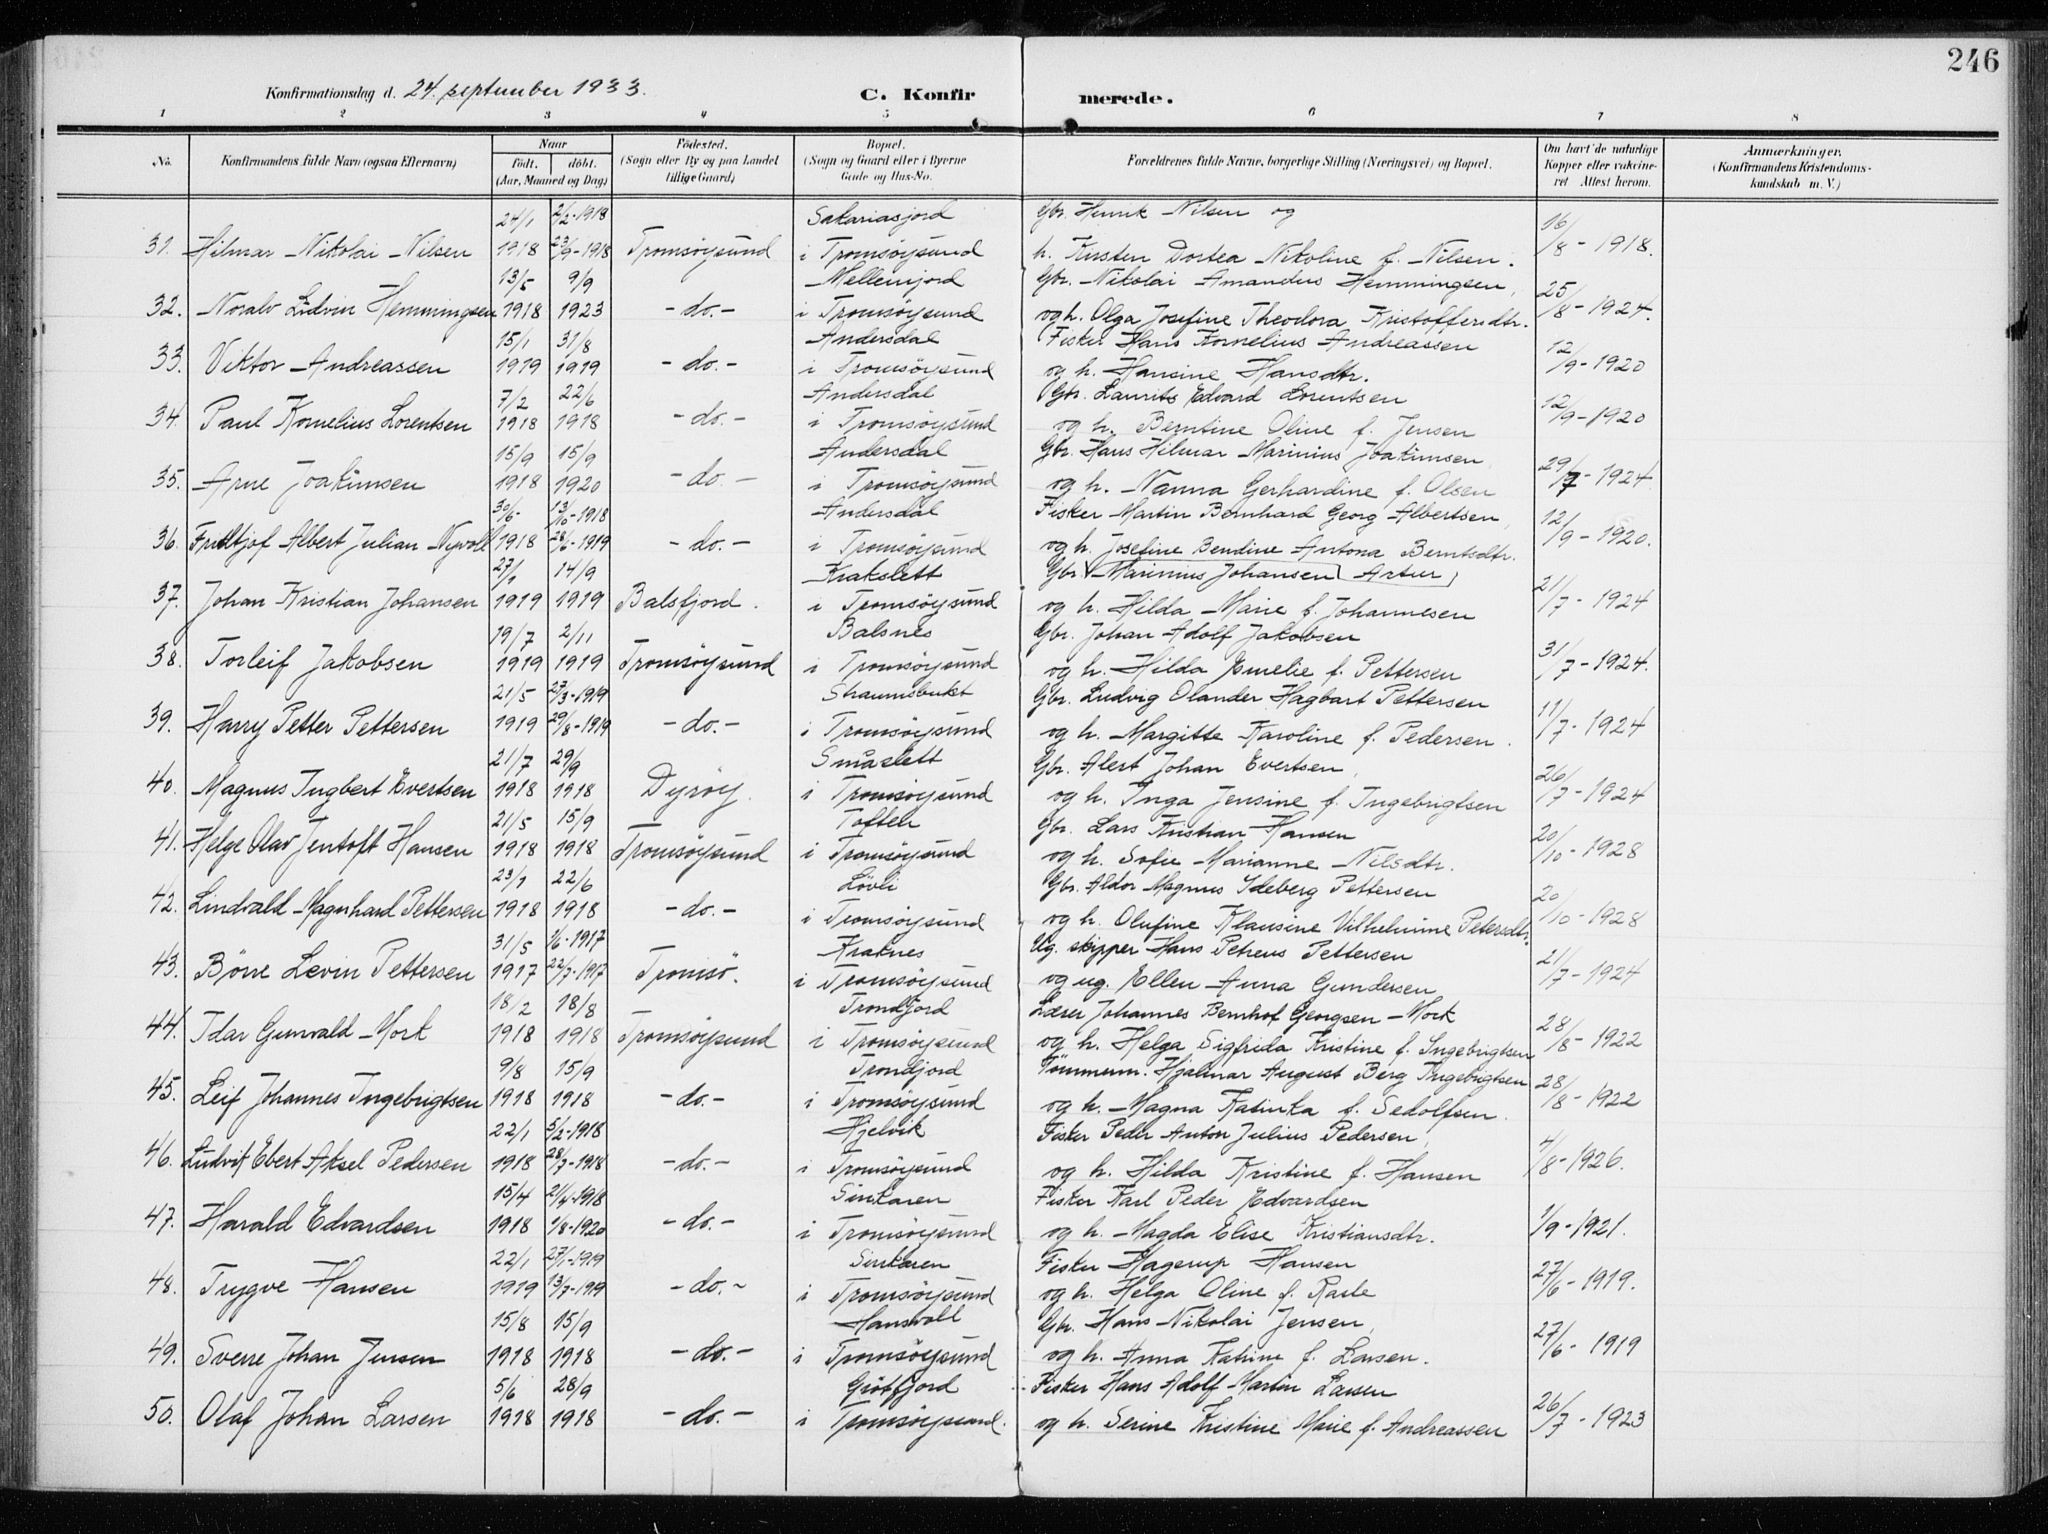 246
Konfirmationsdag d. 24. september 1933.
C. Konfirmerede.
1 2 3 4 5 6 7 8
No. Konfirmandens fulde Navn (ogsaa Efternavn) Naar födt. döbt. (Aar, Maaned og Dag) Födested. (Sogn eller By og paa Landet tillige Gaard) Bopæl. (Sogn og Gaard eller i Byerne Gade og Hus-No. Forældrenes fulde Navne, borgerlige Stilling (Næringsvei) og Bopæl. Om havt de naturlige Kopper eller vaccineret Attest herom. Anmærkninger, (Konfirmandens Kristendomskundskab m. V.)
24/1 2/2-1918 Sakariasjord Gbr. Henrik Nilsen og 16/
31. Hilmar Nikolai Nilsen 1918 23/9-1918 Tromsöysund i Tromsöysund h. Kirsten Dortea Nikoline f. Nilsen. /8-1918.
13/5 9/9 Mellemjord Gbr. Nikolai Amandus Hemmingsen, 25
32. Noralv Lidvin Hemmingsen 1918 1923 -do.- i Tromsöysund og h. Olga Josefine Theodora Kristoffersdtr. /8-1924.
15/1 31/8 Andersdal Fisker Hans Kornelius Andreassen 12
33. Viktor Andreassen 1919 1919 -do.- i Tromsöysund og h. Hansine Hansdtr. /9-1920
7/2 22/6 Andersdal Gbr. Laurits Edvard Lorentsen 12
34. Paul Kornelius Lorentsen 1918 1918 -do.- i Tromsöysund og h. Berntine Oline f. Jensen /9-1920
15/9 15/9 Andersdal Gbr. Hans Hilmar Marinius Joakimsen, 29
35. Arne Joakimsen 1918 1920 -do.- i Tromsöysund og h. Nanna Gerhardine f. Olsen /7-1924.
30/6 13/10-1918 Andersdal Fisker Martin Bernhard Georg Albertsen, 12/
36. Fridtjof Albert Julian Nyvoll 1918 28/6-1919 -do.- i Tromsöysund og h. Josefine Bendine Antona Berntsdtr. /9-1920.
27/1 14/9 Krakslett Gbr. Marinius Johansen (Artur) 21/
37. Johan Kristian Johansen 1919 1919 Balsfjord. i Tromsöysund og h. Hilda Marie f. Johannesen /7-1924
19/7 2/11 Balsnes Gbr. Johan Adolf Jakobsen 31
38. Torleif Jakobsen 1919 1919 Tromsöysund i Tromsöysund og h. Hilda Emelie f. Pettersen /7-1924.
21/5 27/3-1919 Straumsbukt Gbr. Ludvig Olander Hagbart Pettersen 11/
39. Harry Petter Pettersen 1919 29/8-1919 -do.- i Tromsöysund og h. Margitte Karoline f. Pedersen. /7-1924
21/7 29/9 Småslett Gbr. Alert Johan Evertsen, 26/
40. Magnus Ingbert Evertsen 1918 1918 Dyröy. i Tromsöysund og h. Inga Jensine f. Ingebrigtsen /7-1924
21/5 15/9 Toften Gbr. Lars Kristian Hansen 20/
41. Helge Olav Jentoft Hansen 1918 1918 Tromsöysund i Tromsöysund og h. Sofie Marianne Nilsdtr. /10-1928
23/1 22/6 Lövli Gbr. Aldor Magnus Ideberg Pettersen 20
42. Lindvald Magnhard Pettersen 1918 1918 -do.- i Tromsöysund og h. Olufine Klausine Vilhelmine Petersdtr. /10-1928
31/5 1/6-1917 Kraknes Ug. skipper Hans Petreus Pettersen 21/
43. Börre Levin Pettersen 1917 22/7-1917 Tromsö. i Tromsöysund og ug. Ellen Anna Gundersen /7-1924
18/2 18/8 Trondjord Lærer Johannes Bernhof Georgsen Mork 28
44. Idar Gunvald Mork 1918 1918 Tromsöysund i Tromsöysund og h. Helga Sigfrida Kristine f. Ingebrigtsen /8-1922
9/8 15/9 Trondjord Tömmerm. Hjalmar August Berg Ingebrigtsen 28/
45. Leif Johannes Ingebrigtsen 1918 1918 -do.- i Tromsöysund og h. Magna Katinka f. Sedolfsen. /8-1922
22/1 5/2-1918 Hjelvik Fisker Peder Anton Julius Pedersen, 4/
46. Ludvik Ebert Aksel Pedersen 1918 28/7-1918 -do.- i Tromsöysund og h. Hilda Kristine f. Hansen /8-1926.
15/4 21/4-1918 Sinkaren Fisker Karl Peder Edvardsen
47. Harald Edvardsen 1918 1/8-1920 -do.- i Tromsöysund og h. Magda Elise Kristiansdtr. 1/9-1921.
22/1 27/1-1919 Sinkaren Fisker Hagerup Hansen 27/
48. Trygve Hansen 1919 13/7-1919 -do.- i Tromsöysund og h. Helga Oline f. Karle /6-1919.
15/8 15/9 Hansvoll Gbr. Hans Nikolai Jensen, 27/
49. Sverre Johan Jensen 1918 1918 -do.- i Tromsöysund og h. Anna Katrine f. Larsen. /6-1919
5/6 28/9 Grötfjord Fisker Hans Adolf Martin Larsen 26/
50. Olaf Johan Larsen 1918 1918 -do.- i Tromsöysund. og h. Serine Kristine Marie f. Andreassen /7-1923